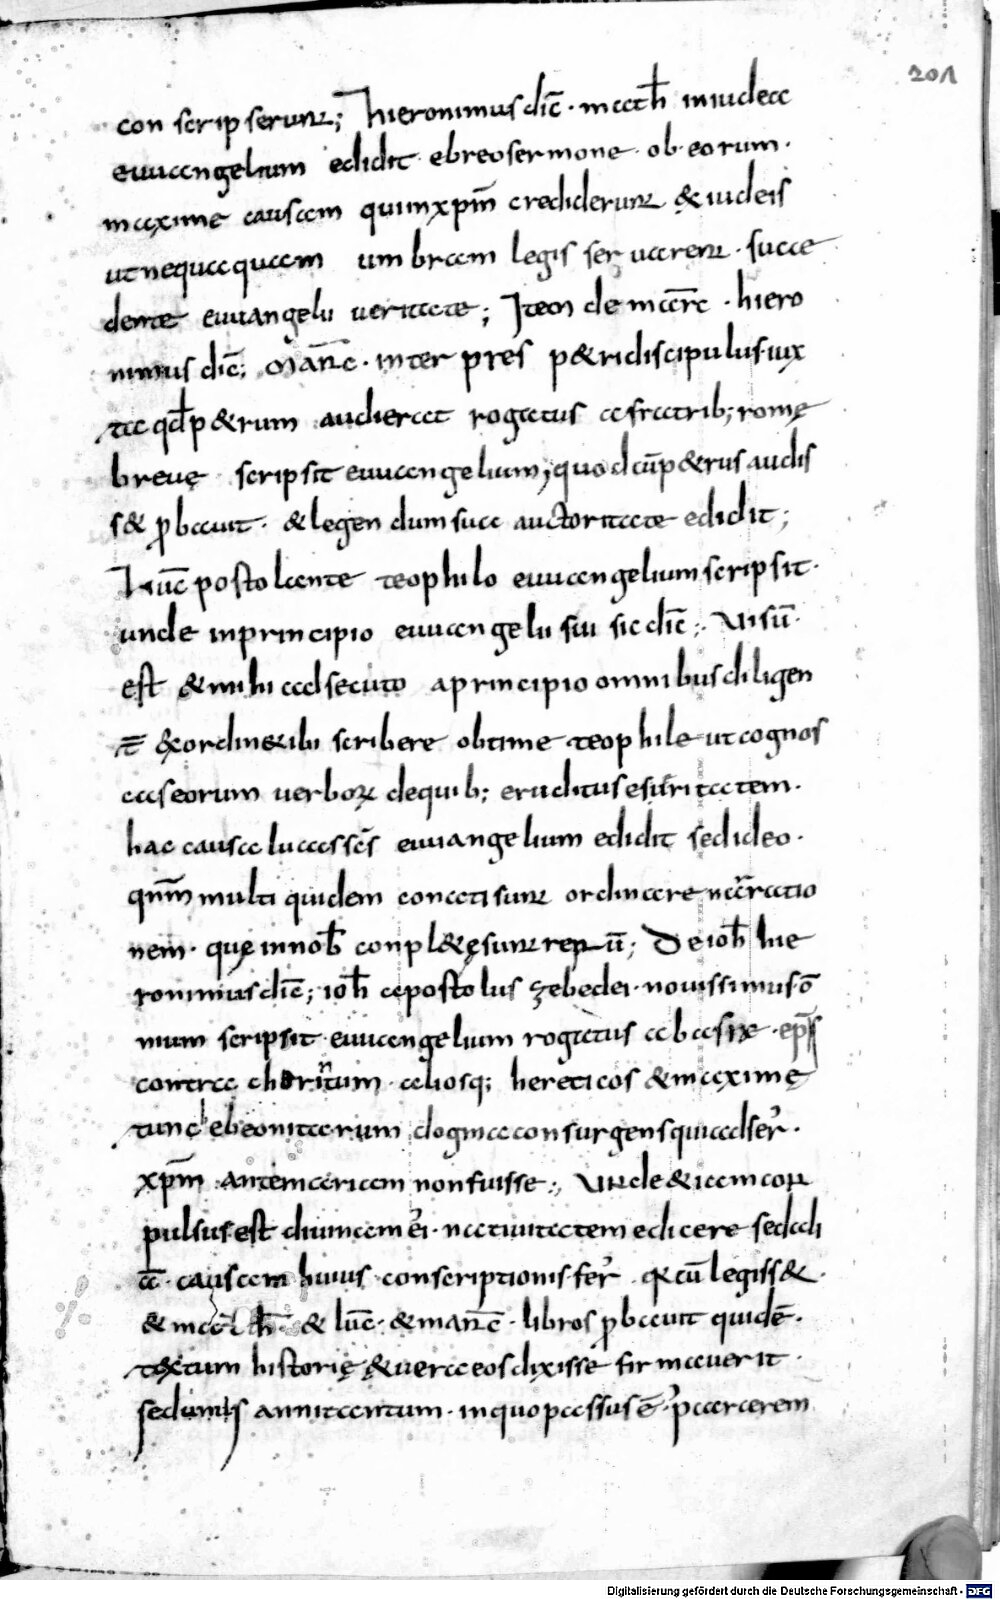 201
con scripserunt; Hieronimus dic̄ · math̄ in iudea
euuangelium edidit ebreo sermone · ob eorum ·
maxime causam qui in xp̄m crediderunt & iudeis
ut nequaquam umbram legis seruarent · succe
dente euuangelii ueritate; Item de marc̄ · hiero
nimus dic̄; Marc̄ · interpres p&ri discipulus · iux
ta qd̄ p&rum audierat rogatus a fratrib; romę
breuę scripsit euuangelium; quod cū p&rus audis
s& p̄bauit · & legendum sua auctoritate edidit;
Luc̄ postolante teophilo euuangelium scripsit ·
unde in principio euuangelii sui sic dic̄; Uisū ·
est & mihi adsecuto a principio omnibus diligen
t̄ & ordine tibi scribere obtime teophile ut cognos
cas eorum uerborum de quib; eruditus es ueritatem ·
hac causa lucas sc̄s euuangelium edidit sed ideo ·
qnm̄ multi quidem conati sunt ordinare narratio
nem · quę in nob̄ conpl&ę sunt rerū; De ioh̄ hie
ronimus dic̄; ioh̄ apostolus zebedei · nouissimus · ō
nium scripsit · euuangelium rogatus ab asiae · ep̄s
contra cherintum · aliosq; hereticos & maximę
tunc ebeonitarum dogma consurgens qui adser̄ ·
xp̄m ante mariam non fuisse; Unde & iam con
pulsus est diuinam ei · natiuitatem edicere sed ali
ā · causam huius conscriptionis fer̄ · q̄ cū legiss& ·
& math̄ · & luc̄ · & marc̄ · libros p̄bauit quidē ·
textum historię & uera eos dixisse firmauerit ·
sed unius anni tantum · in quo passus ē · p̄ carcerem
Digitalisierung gefördert durch die Deutsche Forschungsgemeinschaft - DFG